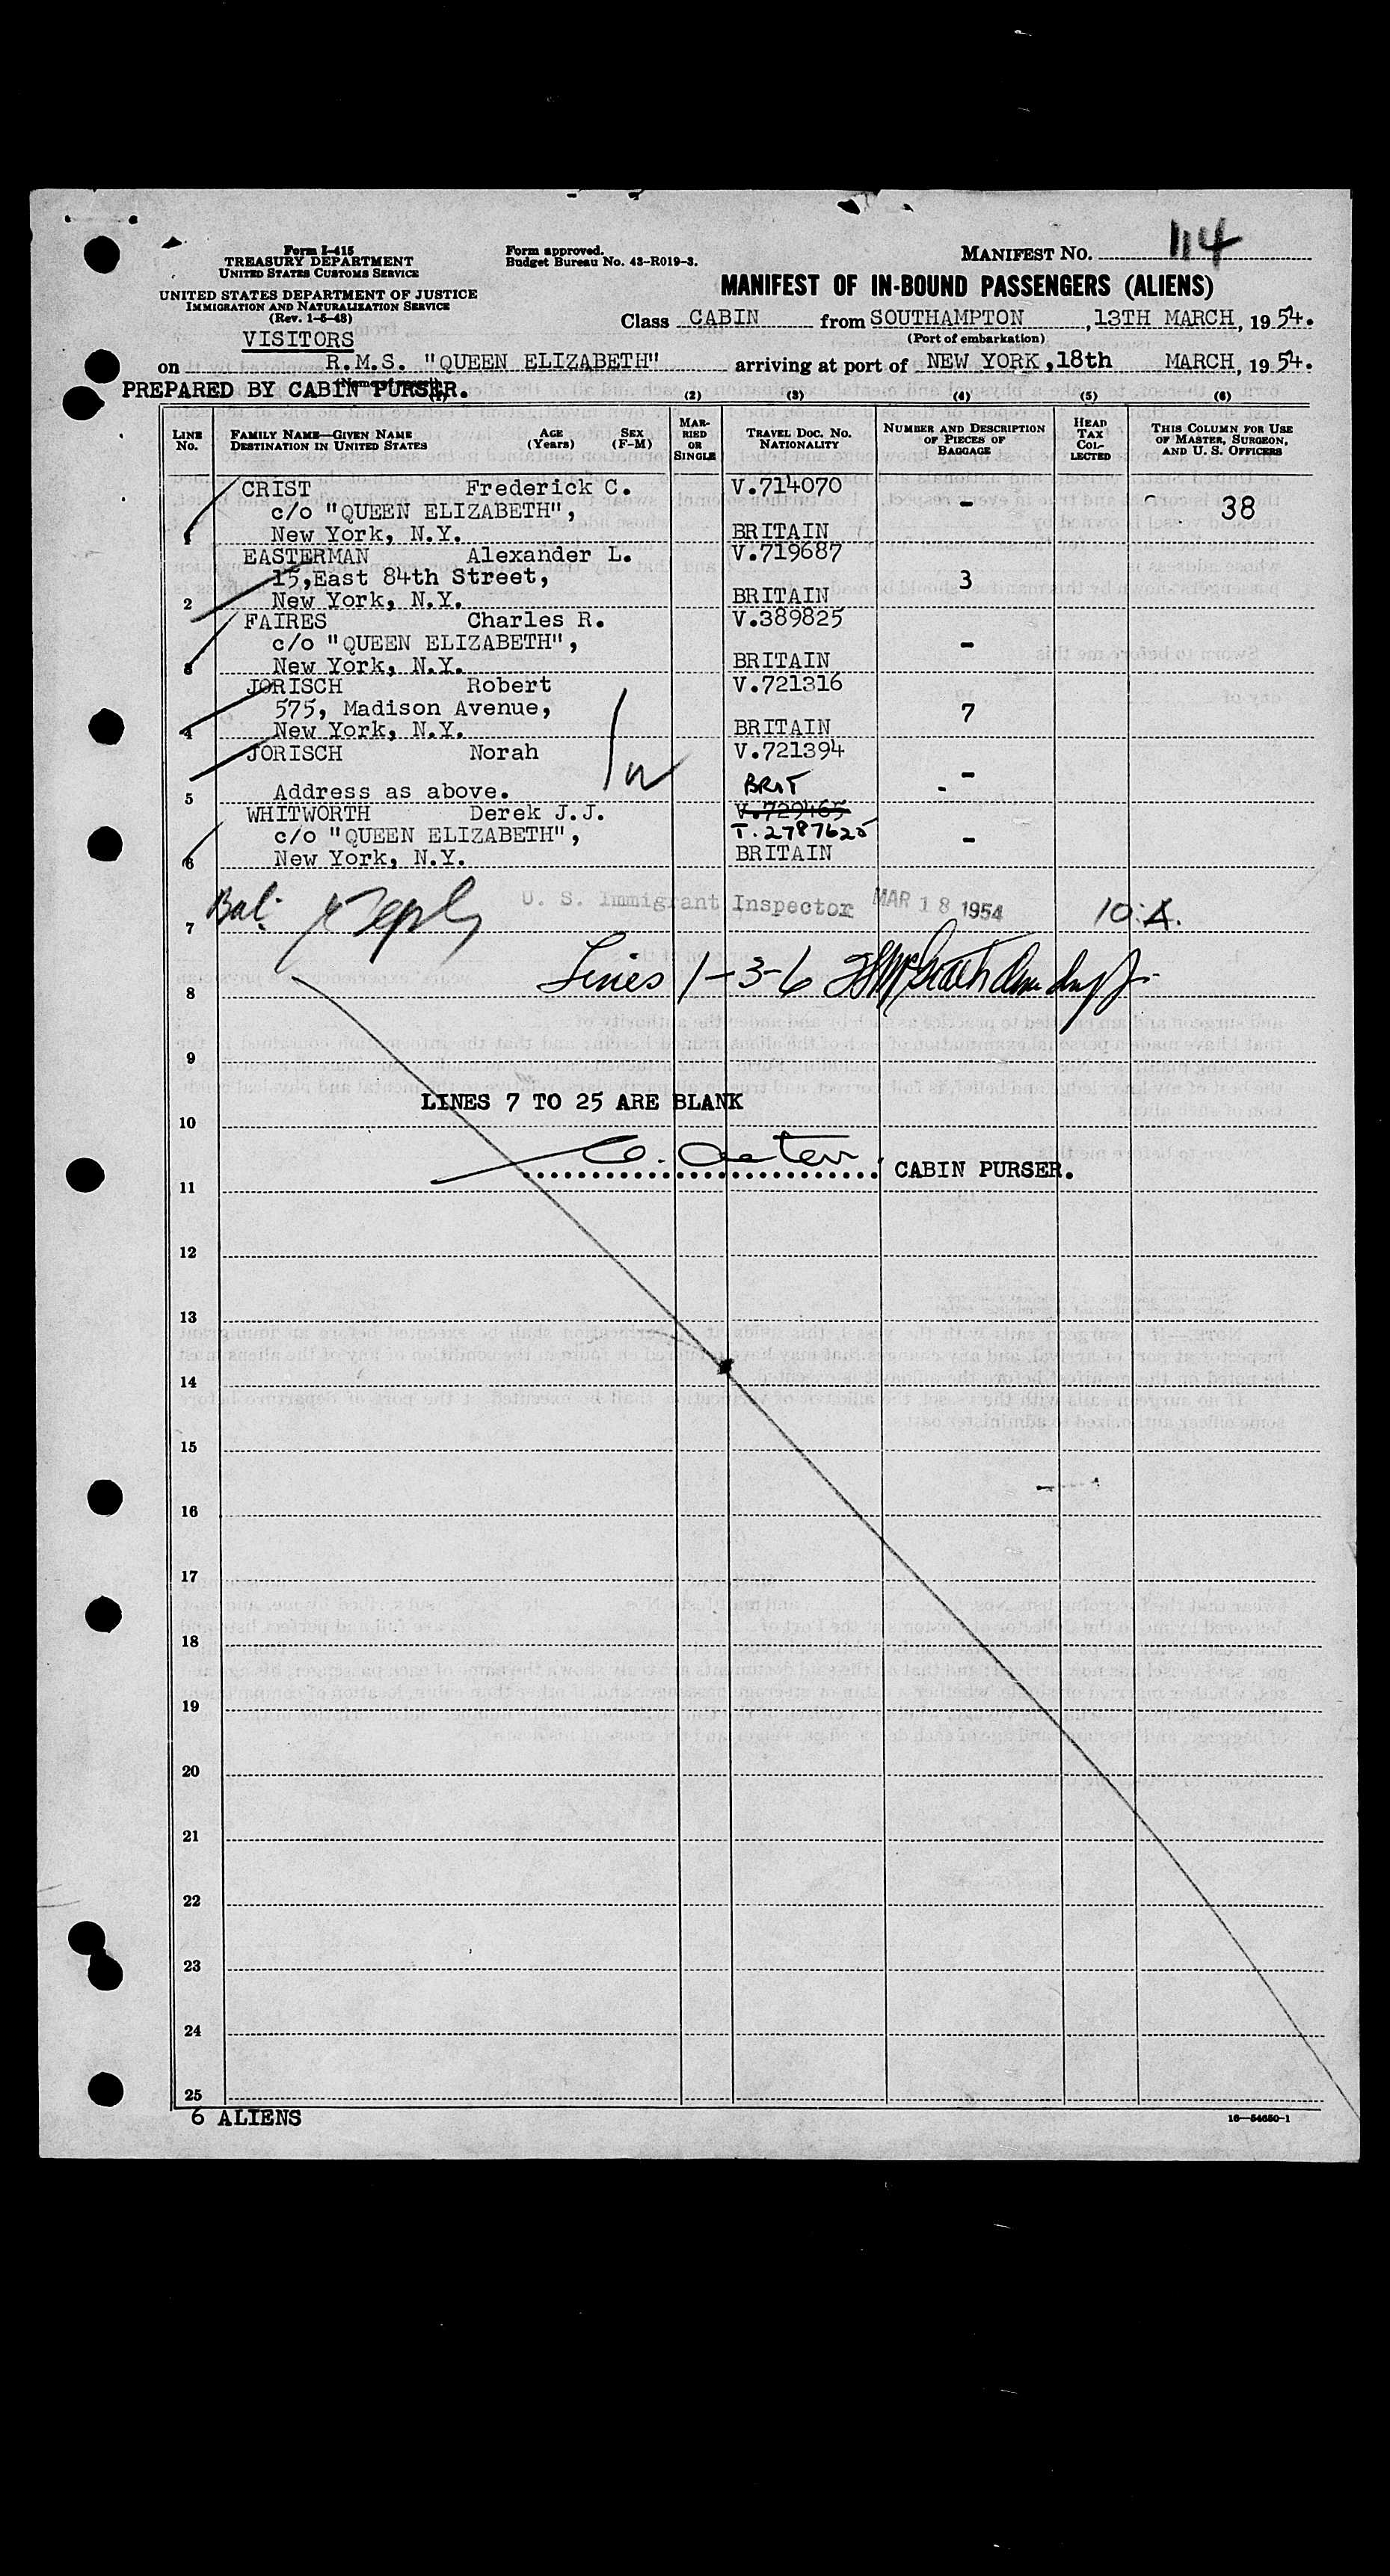 MANIFEST NO. 114
Form I-415
TREASURY DEPARTMENT
UNITED STATES CUSTOMS SERVICE
Form approved.
Budget Bureau No. 43-R019-3.
UNITED STATES DEPARTMENT OF JUSTICE
IMMIGRATION AND NATURALIZATION SERVICE
(Rev. 1-5-48)
VISITORS
MANIFEST OF IN-BOUND PASSENGERS (ALIENS)
Class CABIN from SOUTHAMPTON, 13TH MARCH, 1954.
(Port of embarkation)
on R.M.S. "QUEEN ELIZABETH" arriving at port of NEW YORK, 18th MARCH, 1954.
(Name of vessel)
PREPARED BY CABIN PURSER.
(1) (2) (3) (4) (5) (6)
LINE No. FAMILY NAME—GIVEN NAME DESTINATION IN UNITED STATES AGE (Years) SEX (F-M) MARRIED OR SINGLE TRAVEL DOC. NO. NATIONALITY NUMBER AND DESCRIPTION OF PIECES OF BAGGAGE HEAD TAX COLLECTED THIS COLUMN FOR USE OF MASTER, SURGEON, AND U. S. OFFICERS
CRIST Frederick C. V.714070
c/o "QUEEN ELIZABETH", - 38
1 New York, N.Y. BRITAIN
EASTERMAN Alexander L. V.719687
15,East 84th Street, 3
2 New York, N.Y. BRITAIN
FAIRES Charles R. V.389825
c/o "QUEEN ELIZABETH", -
3 New York, N.Y. BRITAIN
JORISCH Robert V.721316
575, Madison Avenue, 7
4 New York, N.Y. BRITAIN
JORISCH Norah V.721394
5 Address as above. BRIT -
WHITWORTH Derek J.J. V.729465
c/o "QUEEN ELIZABETH", T.2787625 -
6 New York, N.Y. BRITAIN
Bal.
U. S. Immigrant Inspector MAR 18 1954 10:A.
7
Lines 1-3-6
8
9
LINES 7 TO 25 ARE BLANK
10
CABIN PURSER.
11
12
13
14
15
16
17
18
19
20
21
22
23
24
25
6 ALIENS
16—54650-1